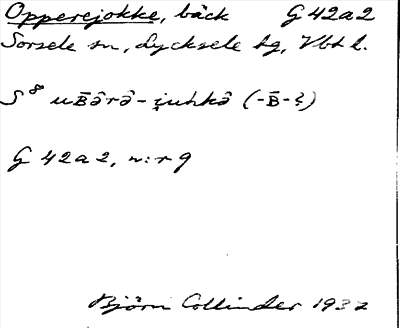 Opperejokke, bäck G 42a2
Sorsele sn, Lycksele lg, Vbt l.
S⁸ uʙ̄ə̂rə̂-i̯uhkə̂ (-ʙ̄-
G 42a2, n:r 9
Björn Collinder 1932